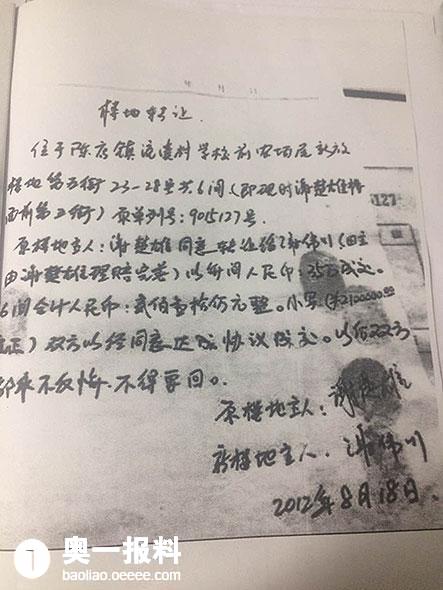 楼地转让.
位于陈店镇流遗村学校前农场尾新放
楼地第五街23-28号共6间(即现时谢楚雄楼
面前第五街)原单列号:9015127号.
127
原楼地主人:谢楚雄同意转让给谢伟川(田主
由谢楚雄理赔完善)以每间人民币:35万成交。
6间合计人民币:贰佰壹拾仟元整。小写(¥2100000.00
元正)双方以经同意达成协议成交。以后双方
都来不反悔.不得要回。
原楼地主人:谢楚雄
新楼地主人.谢伟川
2012年8月18日.
1 奥一报料
baoliao.oeeee.com